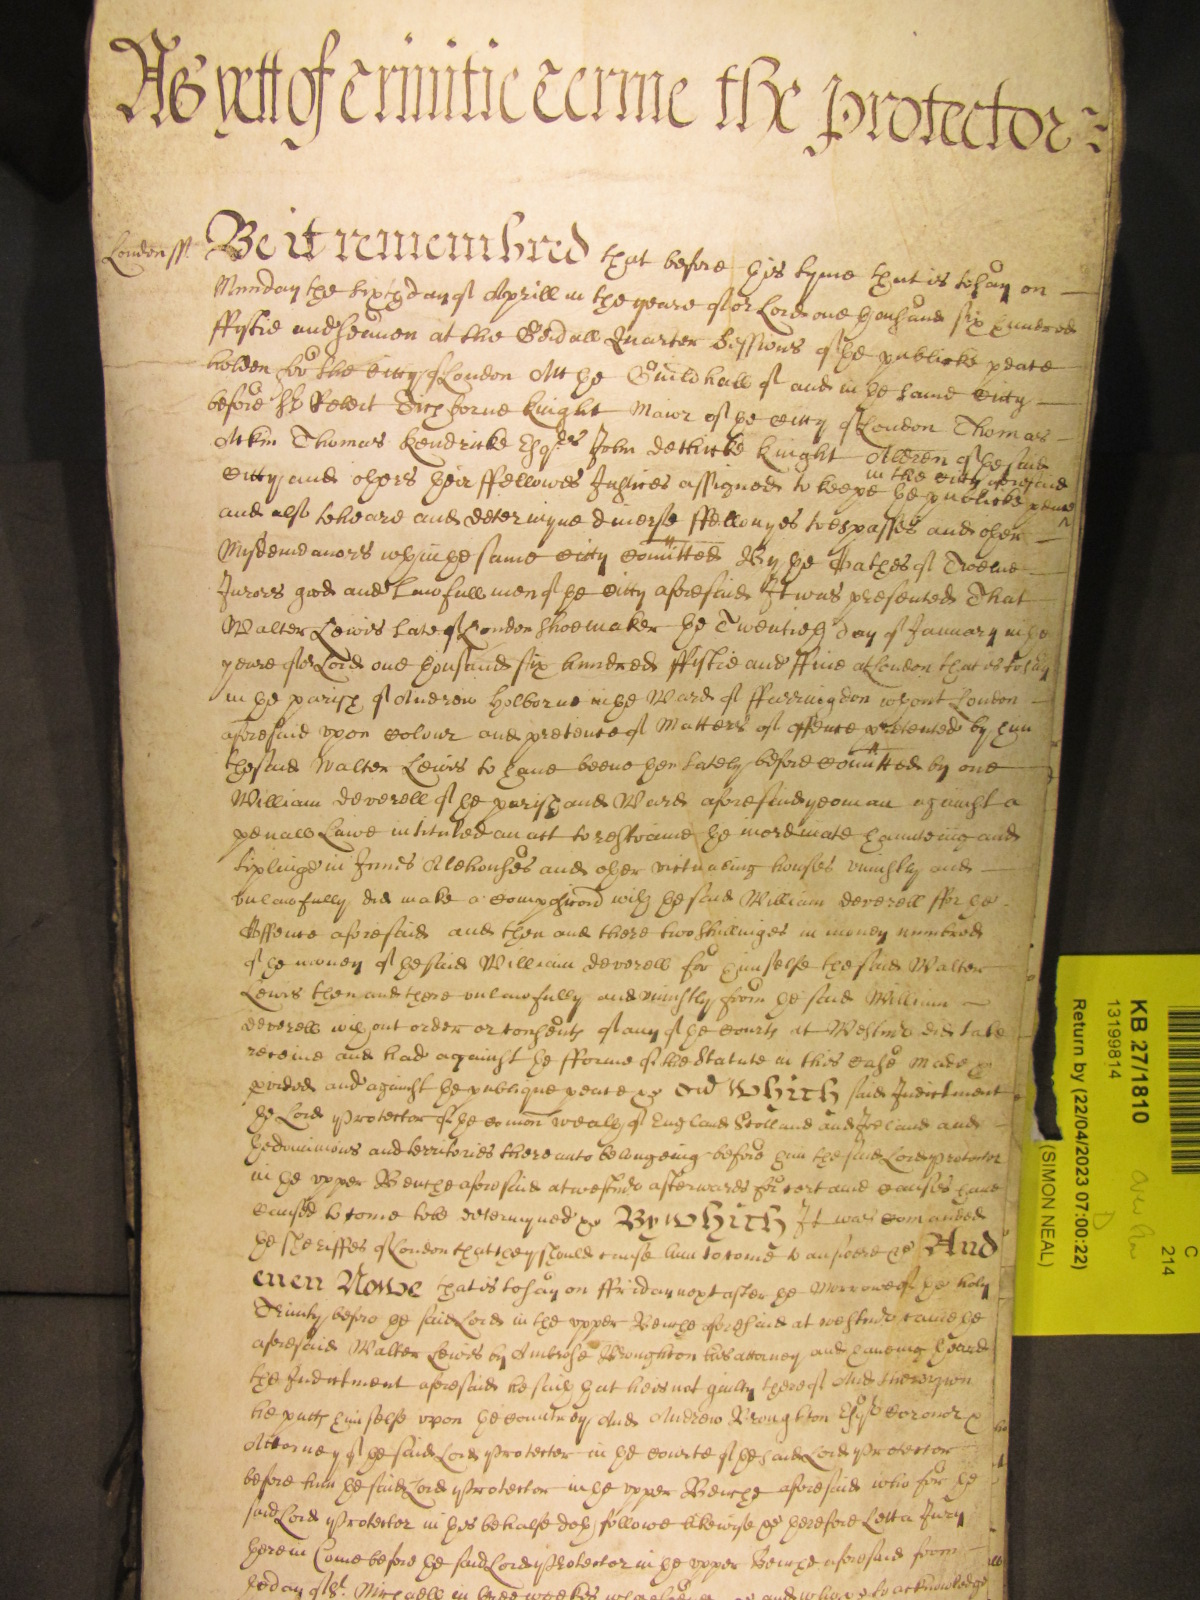 As yett of Trinitie Terme the Protector
London ss. Be it remembred that before this tyme that is to say on
Munday the sixth day of Aprill in the yeare of or Lord one thousand six hundred
ffiftie and seaven at the Gen'all Quarter Sessions of the publicke peace
holden for the Citty of London Att the Guildhall of and in the same Citty
before Sr Robert Tichborne knight Maior of the Citty of London Thomas
Atkin Thomas kendricke Esqres John dethicke knight Alderen of the said
in the Citty aforesaid
Citty and others their ffellowes Justices assigned to keepe the publicke peace
and also to heare and determyne diverse ffellonyes trespasses and other
Mysdemeanors wthin the same Citty comitted By the Oathes of Twelve
Jurors good and Lawfull men of the Citty aforesaid It was presented That
Walter Lewis Late of London Shoemaker the Twentieth day of January in the
yeare of or Lord one thousand six hundred ffiftie and ffive at London that is to say
in the parish of Andrew Holborne in the Ward of ffarringdon wthout London
aforesaid upon Colour and pretence of Matters of offence pretended by him
the said Walter Lewis to have beene then lately before comitted by one
William deverell of the parish and Ward aforesaid yeoman against a
penall Lawe intituled an act to restraine the inordinate haunteing and
tiplinge in Innes Alehouses and other victualing houses uniustly and
unlawfully did make a Composicion with the said William deverell ffor the
Offence aforesaid and then and there two Shillinges in money numbred
of the money of the said William deverell for himselfe the said Walter
Lewis then and there unlawfully and uniustly from the said William
deverell without order or consent of any of the Courts at Westmr did take
receive and had against the fforme of the Statute in this case made &
provided and against the publique peace &c Wch Which said Indictment
the Lord Protector of the Comon wealth of England Scotland and Ireland and
the dominions and territories thereunto belongeing before him the said Lord Protector
in the upper Benche aforesaid at westmr afterwards for certaine causes have
caused to come to be determyned &c By which It was comanded
the sheriffes of London that they should cause him to come to answere &c And
even Nowe that is to say on ffriday next after the Morrowe of the holy
Trinity before the said Lord in the upper Benche aforesaid at westmr came the
aforesaid Walter Lewis by Ambrose Broughton his attorney and haveing heard
the Indictment aforesaid he saith that he is not guilty thereof And thereupon
he putts himselfe upon the countrey And Andrew Broughton Esqr Coronor &
Attorney of the said Lord Protector in the Courte of the said Lord Protector
before him the said Lord Protector in the upper Benche aforesaid who for the
said Lord Protector in this behalfe doth followe likewise &c therefore Lett a Jury
therein Come before the said Lord Protector in the upper Benche aforesaid from
the day of St. Michaell in three weekes and who to acknowledge
KB 27/1810
13199814
Return by (22/04/2023 07:00:22)
(SIMON NEAL)
C
214
D